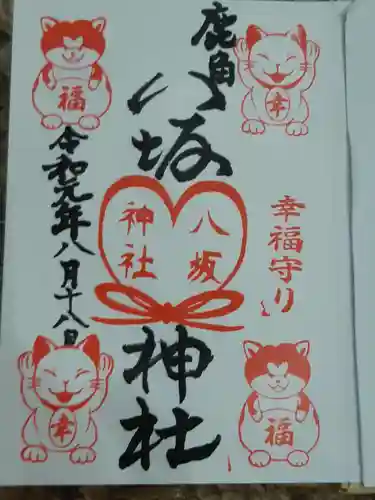 鹿角
八坂
神社
八坂
神社
幸福守り
令和元年八月十八日
福
幸
幸
福